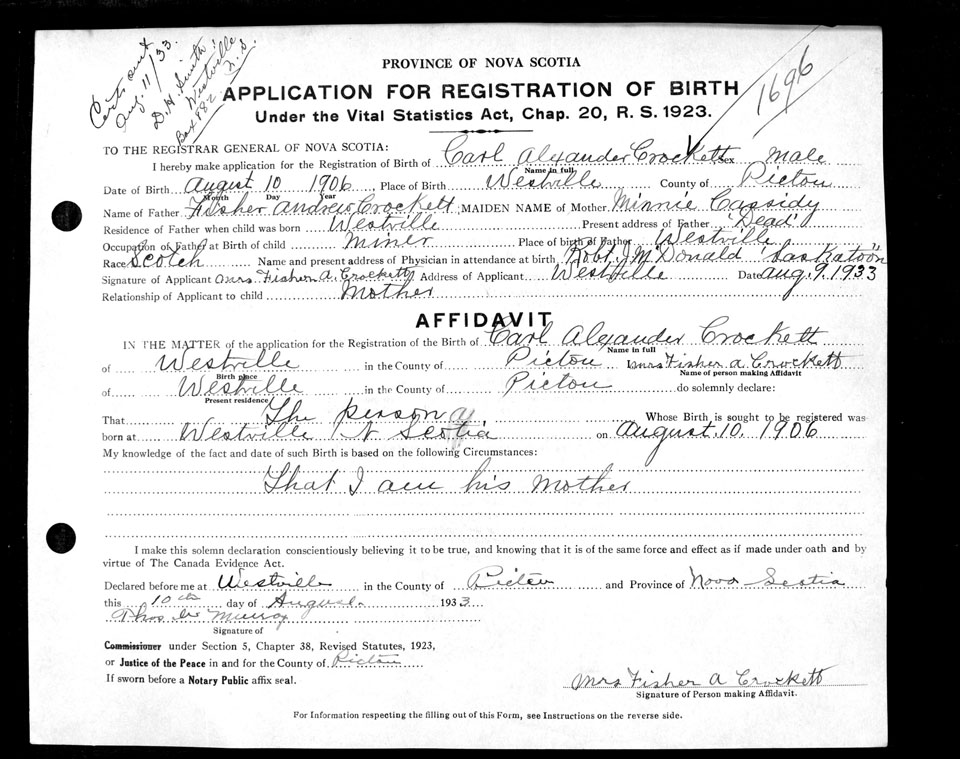 Certs sent
Aug. 11/33.
D. H. Smith
Westville
Box 882 N. S.
1696
PROVINCE OF NOVA SCOTIA
APPLICATION FOR REGISTRATION OF BIRTH
Under the Vital Statistics Act, Chap. 20, R. S. 1923.
TO THE REGISTRAR GENERAL OF NOVA SCOTIA:
I hereby make application for the Registration of Birth of Carl Alexander Crockett Sex Male
Name in full
Date of Birth August 10 1906, Place of Birth Westville County of Pictou
Month Day Year
Name of Father Fisher Andrew Crockett; MAIDEN NAME of Mother Minnie Cassidy
Residence of Father when child was born Westville Present address of Father 'Dead'
Occupation of Father at Birth of child Miner Place of birth of Father Westville
Race Scotch Name and present address of Physician in attendance at birth Robt. J McDonald "Saskatoon"
Signature of Applicant Mrs. Fisher A. Crockett Address of Applicant Westville Date Aug. 9. 1933
Relationship of Applicant to child Mother
AFFIDAVIT
IN THE MATTER of the application for the Registration of the Birth of Carl Alexander Crockett
Name in full
of Westville in the County of Pictou Mrs Fisher A Crockett
Birth place Name of person making Affidavit
of Westville in the County of Pictou do solemnly declare:
Present residence
That The person Whose Birth is sought to be registered was
born at Westville N Scotia on August. 10. 1906
My knowledge of the fact and date of such Birth is based on the following Circumstances:
That I am his Mother
I make this solemn declaration conscientiously believing it to be true, and knowing that it is of the same force and effect as if made under oath and by
virtue of The Canada Evidence Act.
Declared before me at Westville in the County of Pictou and Province of Nova Scotia
this 10th day of August 1933
Thos Murray
Signature of
Commissioner under Section 5, Chapter 38, Revised Statutes, 1923,
or Justice of the Peace in and for the County of Pictou
If sworn before a Notary Public affix seal.
Mrs Fisher A Crockett
Signature of Person making Affidavit.
For Information respecting the filling out of this Form, see Instructions on the reverse side.